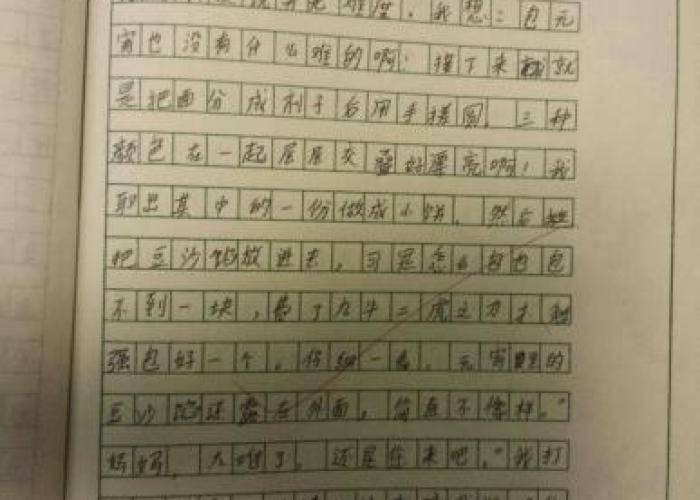 难度,我想:包元
宵也没有什么难的啊!接下来就
是把面分成剂子后用手揉圆,三种
颜色在一起层层交叠好漂亮啊!我
取出其中的一份做成小饼,然后
把豆沙馅放进去,可是怎么包也包
不到一块,费了九牛二虎之力才勉
强包好一个。仔细一看,元宵里的
豆沙馅还露在外面,简直不像样。“
妈妈,太难了,还是你来吧。”我打